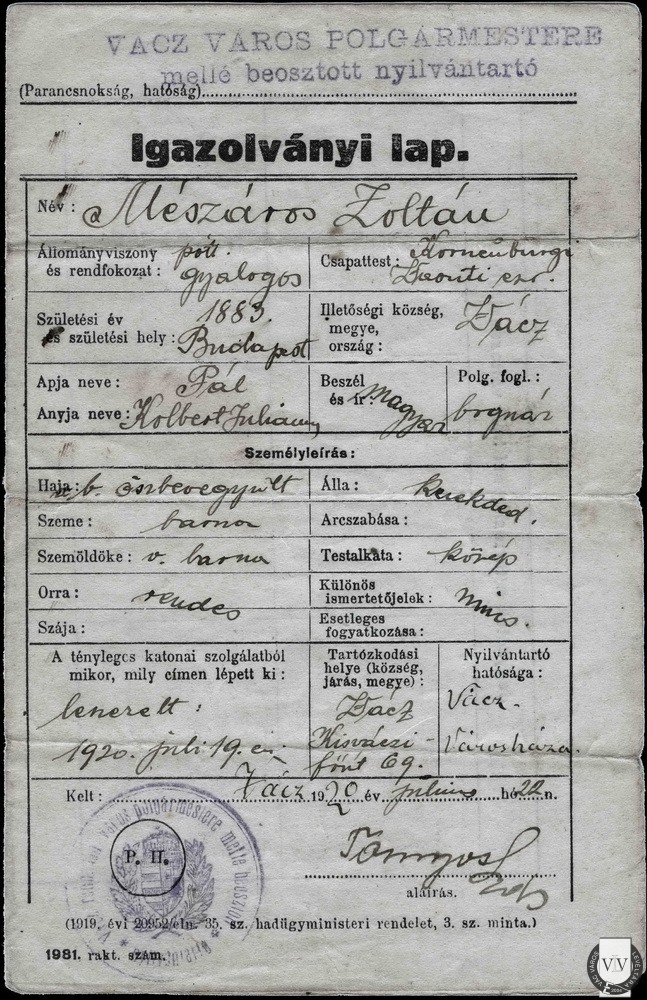 VÁCZ VÁROS POLGÁRMESTERE
mellé beosztott nyilvántartó
(Parancsnokság, hatóság)
Igazolványi lap.
Név: Mészáros Zoltán
Állományviszony és rendfokozat: pótt. gyalogos
Csapattest: Korneuburgi
Születési év és születési hely: 1883. Budapest
Illetőségi község, megye, ország: Vácz
Apja neve: Pál
Anyja neve: Holbert Julianna
Beszél és ír: magyar
Polg. fogl.: bognár
Személyleírás:
Haja: b. őszbevegyült
Álla: kerekded.
Szeme: barna
Arcszabása:
Szemöldöke: v. barna
Testalkata: közép
Orra: rendes
Különös ismertetőjelek: nincs.
Szája:
Esetleges fogyatkozása:
A tényleges katonai szolgálatból mikor, mily címen lépett ki:
leszerelt:
1920. juli 19. én
Tartózkodási helye (község, járás, megye):
Vácz
Kisváczi-
főút 69.
Nyilvántartó hatósága:
Vácz.
Városháza.
Kelt: Vácz 1920 év július hó 22 n.
P. H.
aláírás.
(1919. évi 20952/eln. 35. sz. hadügyministeri rendelet, 3. sz. minta.)
1981. rakt. szám.